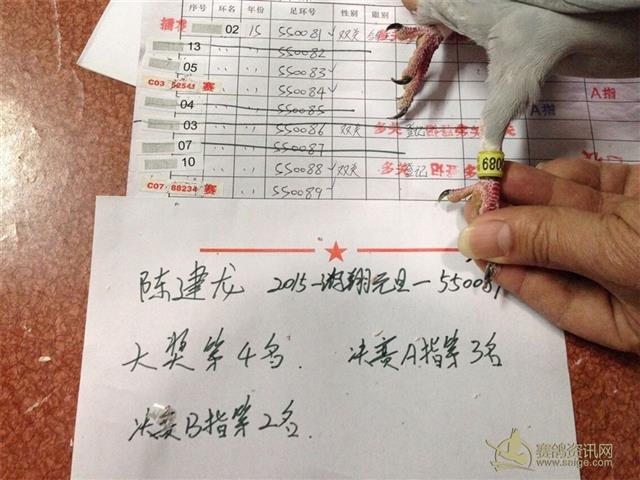 序号 环名 年份 足环号 性别 眼别
02 15 550081 双关
13 〃 〃 550082
05 〃 〃 550083
C03 52541 赛 〃 〃 550084
04 〃 〃 550085 A指
03 〃 〃 550086 双关 多关 登记
07 〃 〃 550087
10 〃 〃 550088 双关 多关 登记
C07 88234 赛 〃 〃 550089
6800
陈建龙 2015-湖翔元旦-55008
大奖第4名. 决赛A指第3名
决赛B指第2名.
赛鸽资讯网
www.saige.com